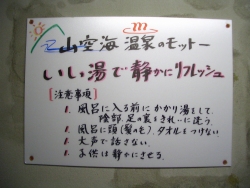 山空海温泉のモットー
いい湯で静かにリフレッシュ
[注意事項]
1. 風呂に入る前にかかり湯をして、
陰部、足の裏をきれいに洗う。
1. 風呂に頭(髪の毛)、タオルをつけない。
1. 大声で話さない。
1. お供は静かにさせる。